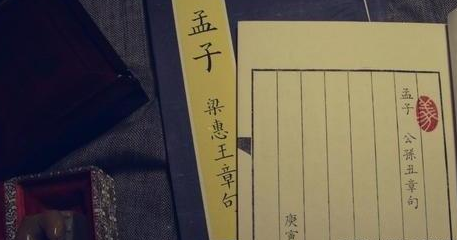 孟子
梁惠王章句
孟子 公孫丑章句
義
庚寅